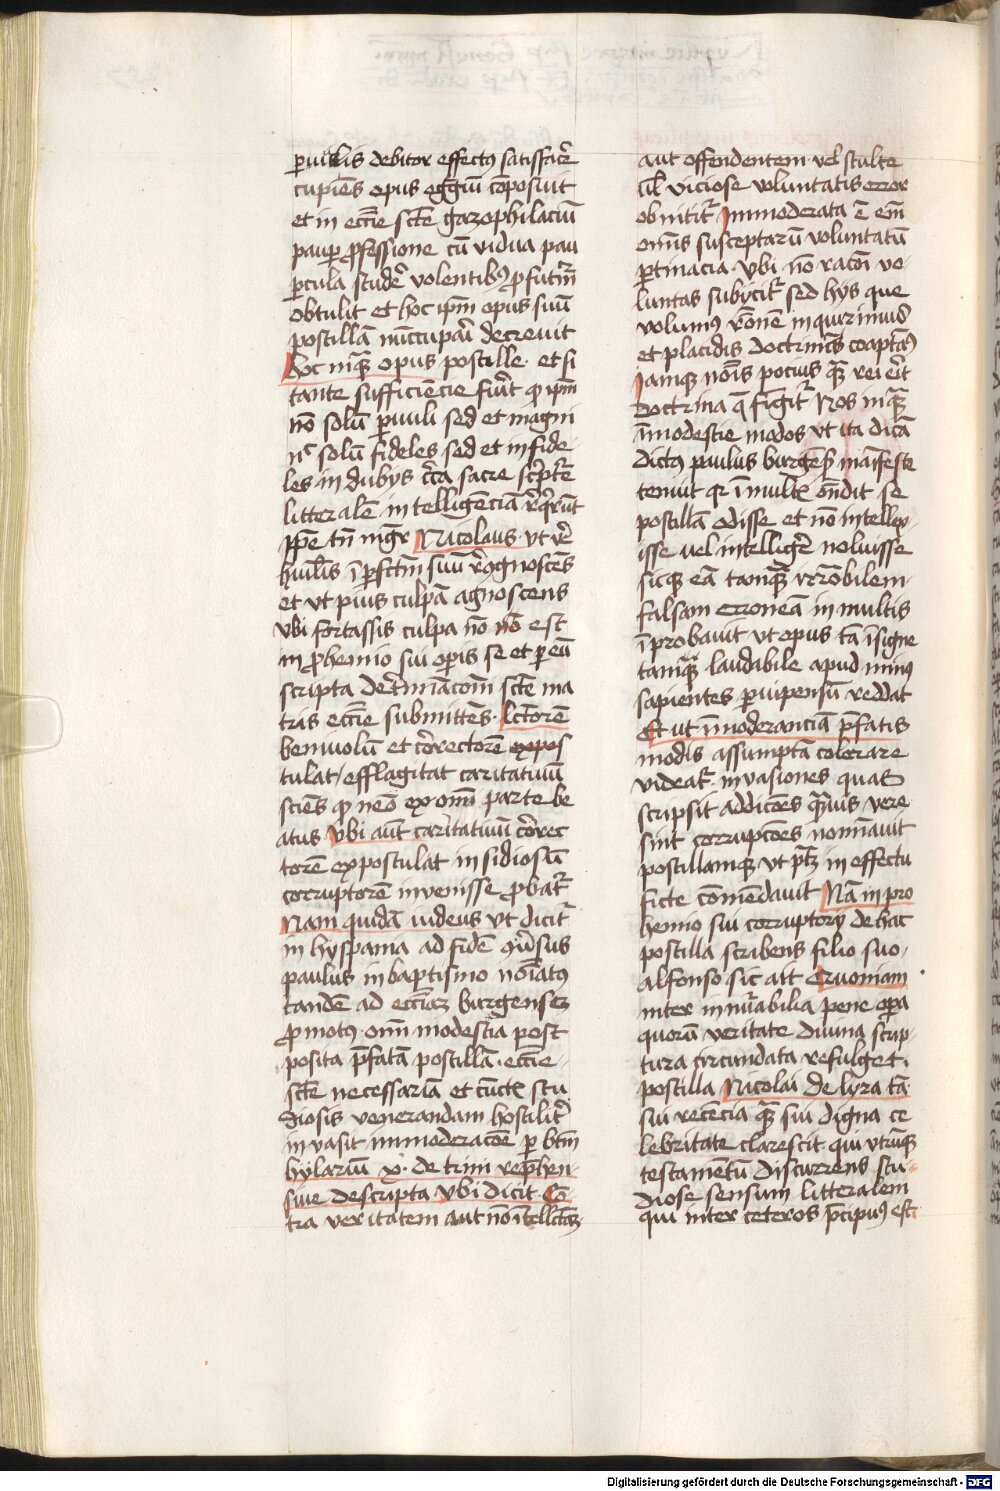 paruulis debitor effectus satisfacere
cupiens opus egregiū cōposuit
et in eccīe scte gazophilaciū
paup professione cū vidua pau
percula studēs volentibus profuturū
obtulit et hoc ipm opus suū
postillā nūccupari decreuit
Hoc inquā opus postille et si
tante sufficiēcie fuerit qp ipm
nō solū paruuli sed et magni
nec solū fideles sed et infide
les in dubys circa sacre scripte
litteralē intelligēciā reqrunt
ipse tn mgr Nicolaus vt vere
humilis īperfectm suū recognoscēs
et vt pius culpā agnoscens
vbi fortassis culpa nō est
in prohemio sui operis se et per eū
scripta determīacōi scte ma
tris eccīe submittēs Lctorē
beniuolū et cōrectorē expos
tulat efflagitat caritatiuū
sciēs qp nemo ex omī parte be
atus vbi aūt caritatiuū cōrec
torē expostulat insidiosum
corruptorē invenisse probatr
Nam quidā iudeus vt dicitr
in hyspania ad fidē cōuersus
paulus in baptismo noīatus
tandē ad eccīaz burgensez
promotus omī modestia post
posita pfatā postillā eccīe
scte necessariā et cūctis stu
diosis venerandam hostilitr
invasit immoderacōe per btm
hylariū x de trini repˀhen
siue descripta vbi dicit Cō
tra veritatem aut nō ītellctaz
aut offendentem vel stulte
vel viciose voluntatis error
obnititr Immoderata ē em
omīs susceptarū voluntatū
pertinacia vbi nō racōi vo
luntas subycitr sed hys que
volumus rōnem inquirimus
et placidis doctrinas coaptam
Iamque nōis pocius quā rei erit
doctrina q figitr Nos inquā
īmodestie modos vt ita dicā
dictus paulus burgēs maīfeste
tenuit qr ī multis ōndit se
postillā odisse et nō intellex
isse vel intelligere noluisse
sicque eā tamquā irrōbilem
falsam erroneā in multis
īprobauit vt opus tā īsigne
tamquā laudibile apud minus
sapientes paruipensū reddat
Et ut īmoderanciā pfatis
modis assumptā colorare
videatr invasiones quas
scripsit addicōes quāuis vere
sint corrupcōes nominauit
postillamque vt ptz in effectu
ficte cōmēdauit Nā in pro
hemio sui corruptory de hac
postilla scribens filio suo
alfonso sic ait Quoniam
inter innūabilia pene opera
quorū veritate diuina scrip
tura circundata refulget
postilla Nicolai de lyra tā
sui recēcia quā sui digna ce
lebritate clarescit qui vtrūque
testamētū discurrens stu
diose sensum litteralem
qui inter ceteros pcipuus est
Digitalisierung gefördert durch die Deutsche Forschungsgemeinschaft - DFG